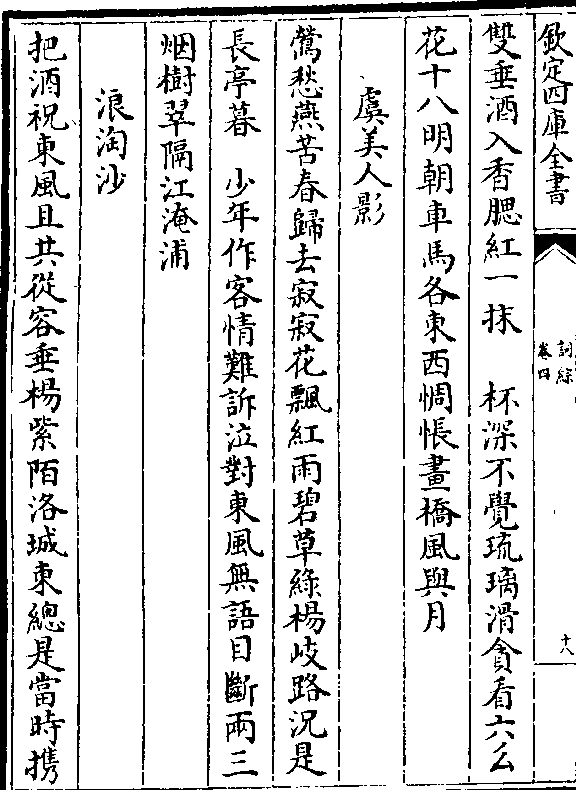 欽定四庫全書
詞綜
卷四
十八
雙垂酒入香腮紅一抹　杯深不覺琉璃滑貪看六幺
花十八明朝車馬各東西惆悵畫橋風與月
虞美人影
鶯愁燕苦春歸去寂寂花飄紅雨碧草綠楊岐路況是
長亭暮　少年作客情難訴泣對東風無語目斷兩三
烟樹翠隔江淹浦
浪淘沙
把酒祝東風且共從容垂楊紫陌洛城東總是當時携